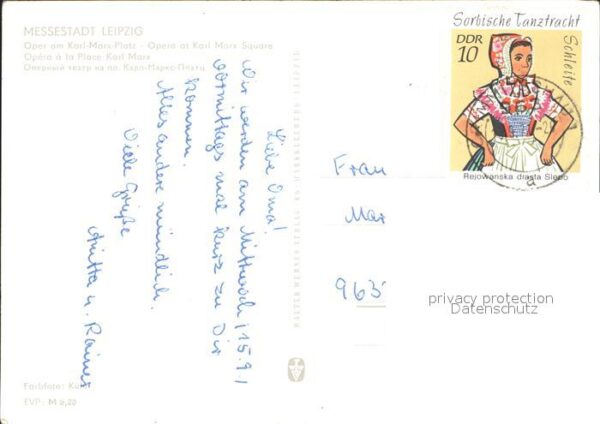 MESSESTADT LEIPZIG
Oper am Karl-Marx-Platz - Opera at Karl Marx Square
Opéra à la Place Karl Marx
Оперный театр на пл. Карл-Маркс-Платц
Liebe Oma!
Wir werden am Mittwoch (15.9.)
vormittags mal kurz zu Dir
kommen.
Alles andere mündlich.
Viele Grüße
Anitta u. Rainer
Farbfoto:
EVP: M 0,20
Sorbische Tanztracht
Schleife
DDR
10
Rejowanska drasta Slepo
Frau
Mar
963
privacy protection
Datenschutz